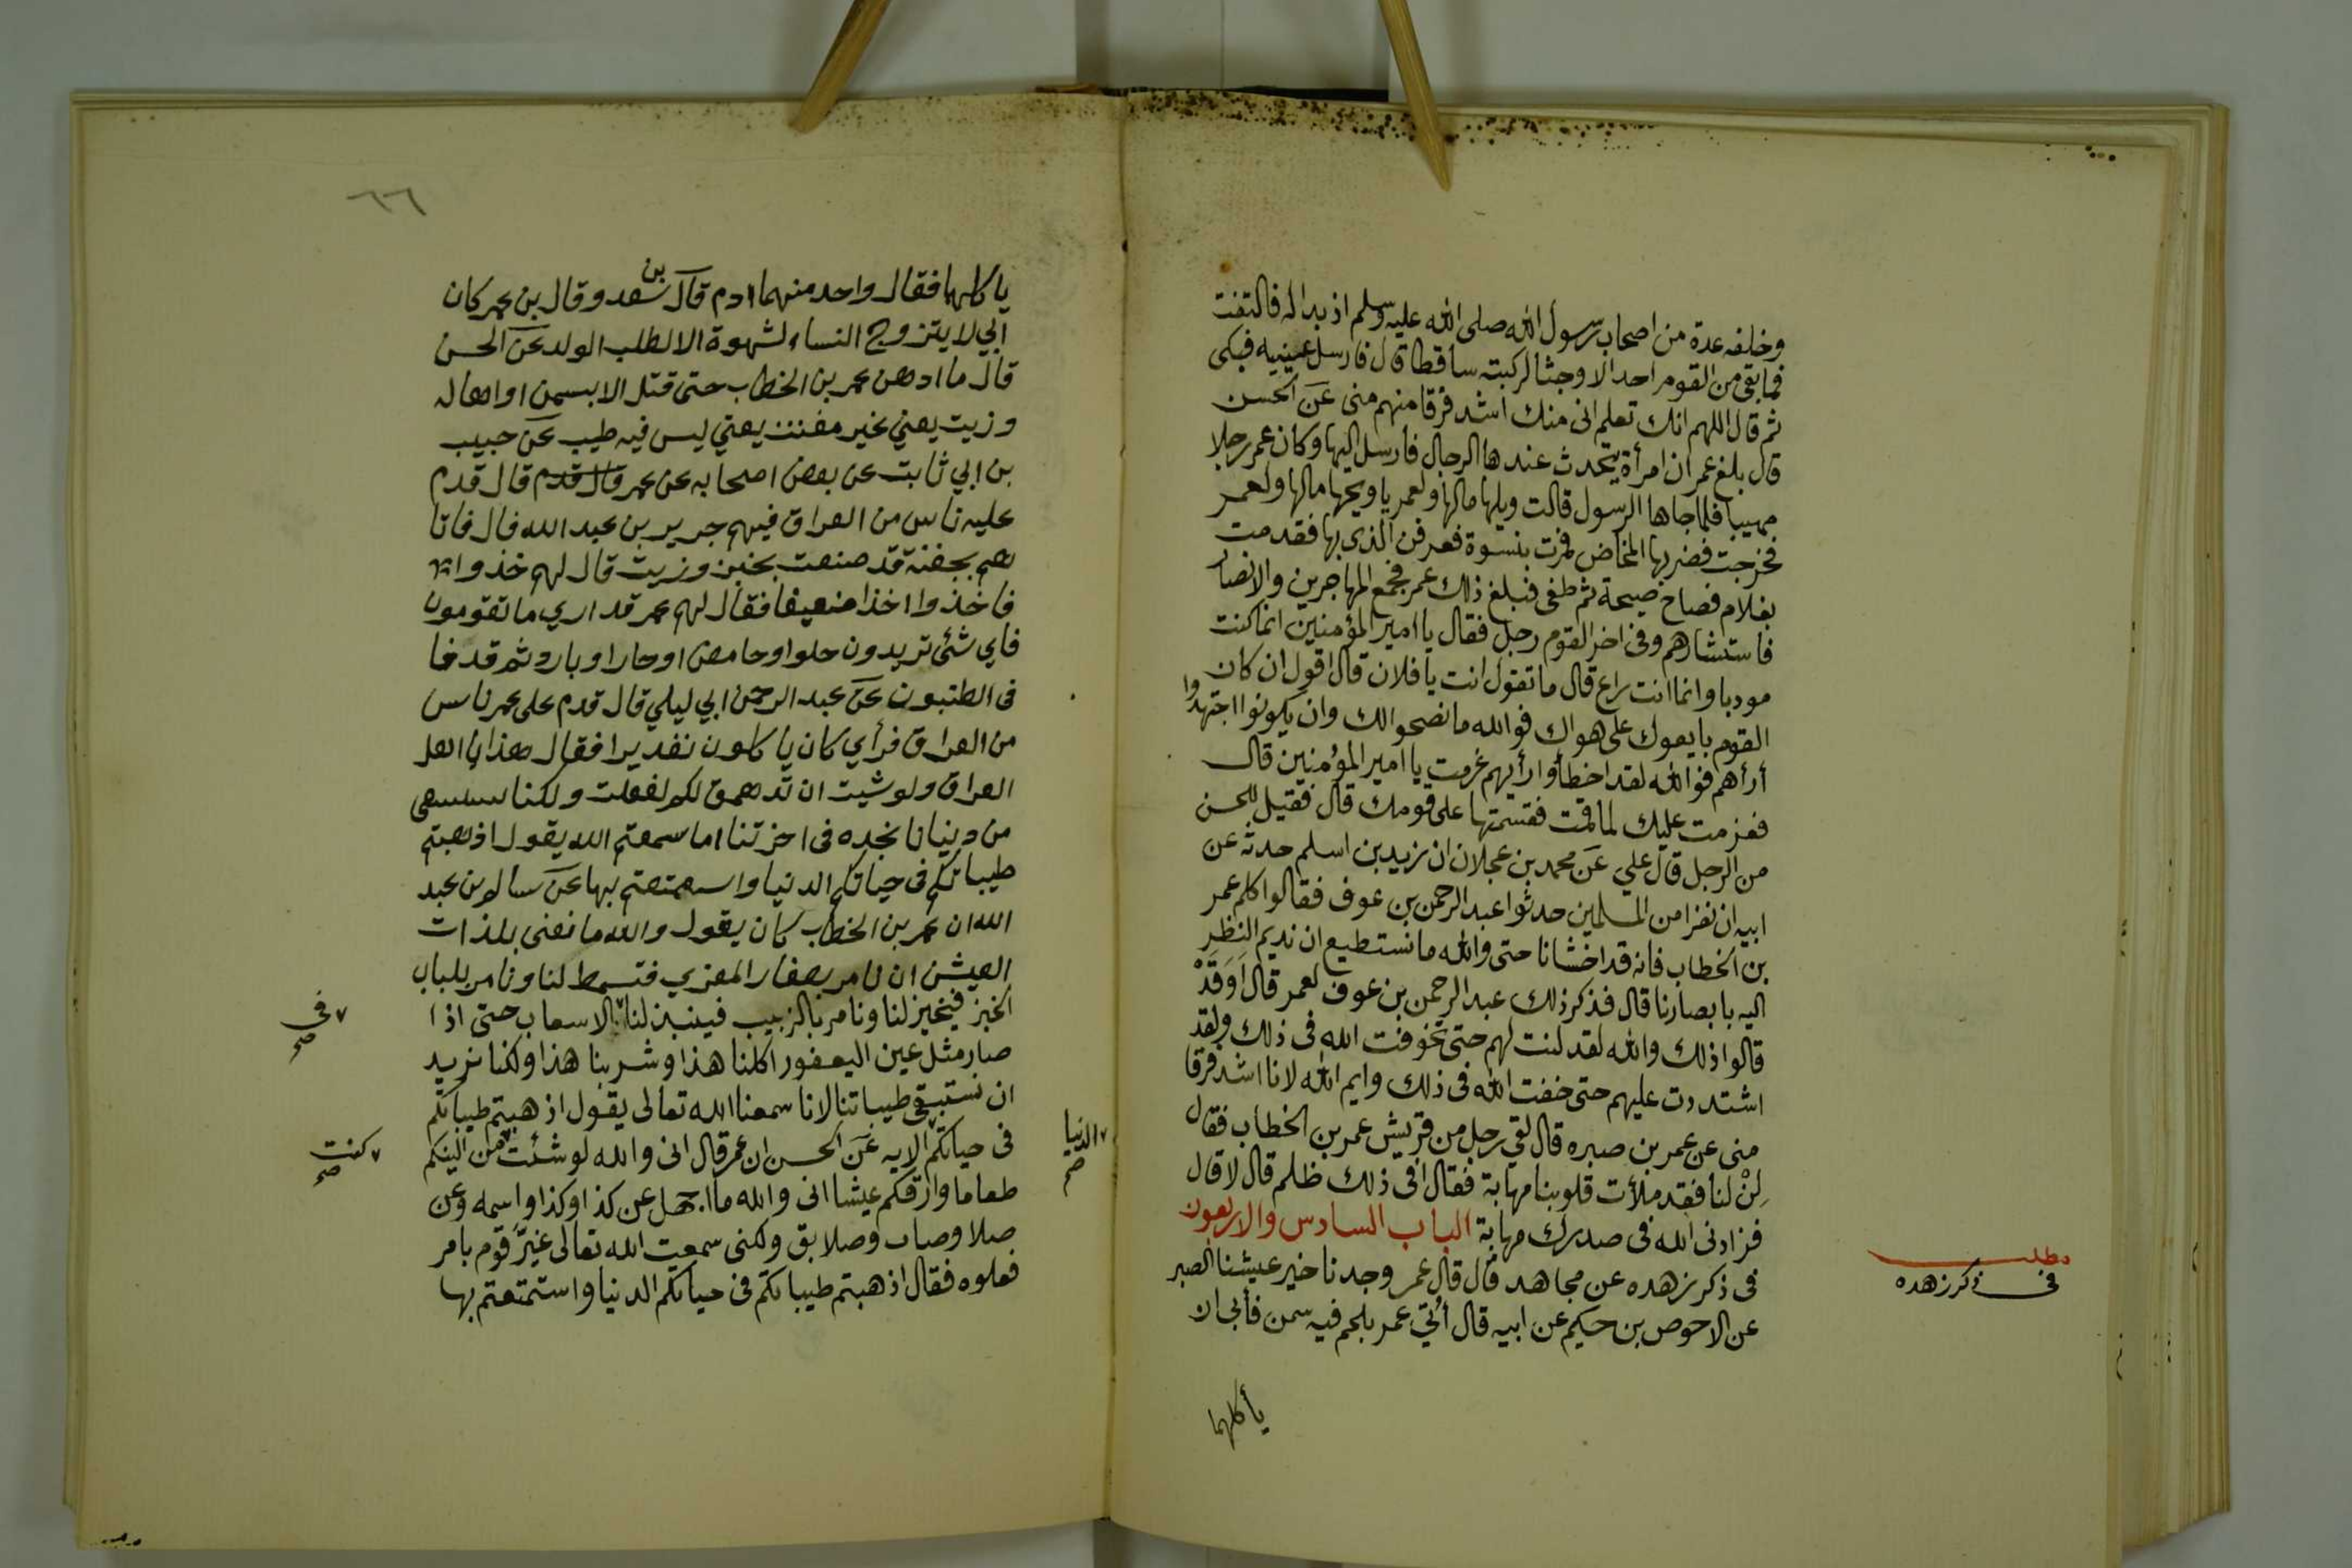 وخلفه عدة من اصحاب رسول الله صلى الله عليه وسلم اذ بدا له فالتفت
فما بقى من القوم احد الا وجثا لركبته ساقطا قال فارسل عينيه فبكى
ثم قال اللهم انك تعلم انى منك اشد فرقا منهم منى عن الحسن
قال بلغ عمر ان امرأة يتحدث عندها الرجال فارسل اليها وكان عمر رجلا
مهيبا فلما جاها الرسول قالت ويلها مالها ولعمر يا ويحها مالها ولعمر
فخرجت فضربها المخاض فمرت بنسوة فعرفن الذى بها فقدمت
بغلام فصاح صيحة ثم طفى فبلغ ذلك عمر فجمع المهاجرين والانصار
فاستشارهم وفى اخر القوم رجل فقال يا امير المؤمنين انما كنت
مودبا وانما انت راع قال ما تقول انت يا فلان قال اقول ان كان
القوم بايعوك على هواك فوالله ما نصحوا لك وان يكونوا اجتهدوا
أرأهم فوالله لقد اخطأوا رأيهم غرمت يا امير المؤمنين قال
فعزمت عليك لما قمت فقسمتها على قومك قال فقيل للحسن
من الرجل قال علي عن محمد بن عجلان ان زيد بن اسلم حدثه عن
ابيه ان نفرا من المسلمين حدثوا عبد الرحمن بن عوف فقالوا كلم عمر
بن الخطاب فانه قد اخشانا حتى والله ما نستطيع ان نديم النظر
اليه بابصارنا قال فذكر ذلك عبد الرحمن بن عوف لعمر قال أوقد
قالوا ذلك والله لقد لنت لهم حتى تخوفت الله فى ذلك ولقد
اشتددت عليهم حتى خفت الله فى ذلك وايم الله لانا اشد فرقا
منى عن عمر بن صبره قال لقي رجل من قريش عمر بن الخطاب فقال
لِنْ لنا فقد ملأت قلوبنا مهابة فقال افى ذلك ظلم قال لا قال
فزادنى الله فى صدرك مهابة الباب السادس والاربعون
فى ذكر زهده عن مجاهد قال قال عمر وجدنا خير عيشنا الصبر
عن الاحوص بن حكيم عن ابيه قال أتي عمر بلحم فيه سمن فأبى ان
يأكلهما
مطلب
فى ذكر زهده
٦٦
ياكلهما فقال واحد منهما ادم قال بن سعد وقال بن عمر كان
ابي لا يتزوج النساء لشهوة الا لطلب الولد عن الحسن
قال ما ادهن عمر بن الخطاب حتى قتل الا بسمن او اهاله
وزيت يعني غير مفتت يعني ليس فيه طيب عن حبيب
بن ابي ثابت عن بعض اصحابه عن عمر قال قدم قال قدم
عليه ناس من العراق فيهم جرير بن عبد الله قال فاتا
هم بجفنة قد صنعت بخبز وزيت قال لهم خذوا
فاخذوا اخذا ضعيفا فقال لهم عمر قد اري ما تقومون
فاي شئ تريدون حلوا وحامض او حارا وبارد ثم قدفا
فى البطون عن عبد الرحمن ابي ليلي قال قدم على عمر ناس
من العراق فرأي كان ياكلون تقديرا فقال هذا يا اهل
العراق ولو شيت ان تدهمق لكم لفعلت ولكنا
من دنيانا نجده فى اخرتنا اما سمعتم الله يقول اذهبتم
طيباتكم فى حياتكم الدنيا واستمتعتم بها عن سالم بن عبد
الله ان عمر بن الخطاب كان يقول والله ما نعنى بلذات
العيش ان نامر بصغار المعزي فتسمط لنا ونامر بلباب
الخبز فيخبز لنا ونامر بالزبيب فينبذ لنا الاسعاب حتى اذا
صار مثل عين اليعفور اكلنا هذا وشربنا هذا ولكنا نريد
ان نستبقي طيباتنا لانا سمعنا الله تعالى يقول اذهبتم طيباتكم
فى حياتكم الايه عن الحسن ان عمر قال انى والله لو شئت من الينكم
طعاما وارقكم عيشا انى والله ما اجهل عن كذا وكذا واسمه وعن
صلا وصاب وصلايق ولكنى سمعت الله تعالى غيَّر قوم بامر
فعلوه فقال اذهبتم طيباتكم فى حياتكم الدنيا واستمتعتم بها
فى
صح
كنت
صح
الدنيا
صح